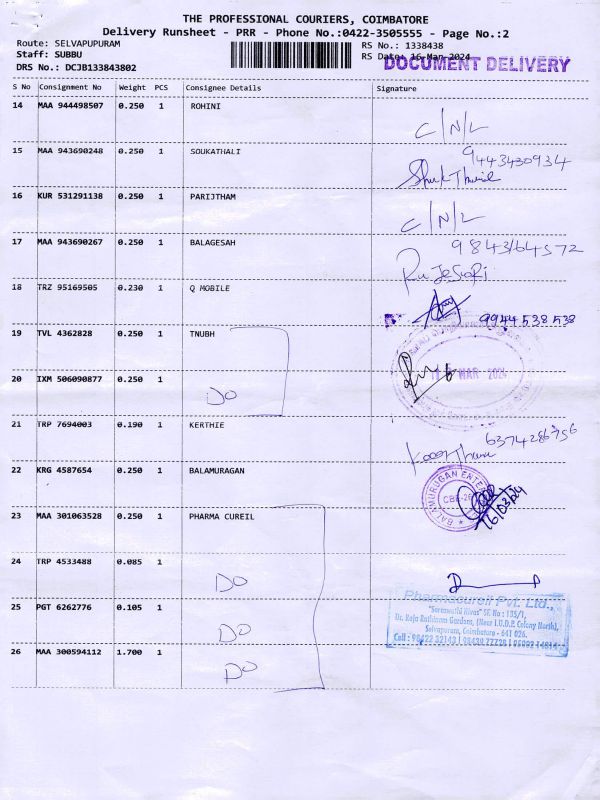 THE PROFESSIONAL COURIERS, COIMBATORE
Delivery Runsheet - PRR - Phone No.:0422-3505555 - Page No.:2
Route: SELVAPUPURAM
RS No.: 1338438
Staff: SUBBU
RS Date: 16-Mar-2024
DRS No.: DCJB133843802
DOCUMENT DELIVERY
S No Consignment No Weight PCS Consignee Details Signature
14 MAA 944498507 0.250 1 ROHINI
C/N/L
15 MAA 943690248 0.250 1 SOUKATHALI
9443430934
16 KUR 531291138 0.250 1 PARIJTHAM
C/N/L
17 MAA 943690267 0.250 1 BALAGESAH
9843164572
RajeswaRi
18 TRZ 95169505 0.230 1 Q MOBILE
9944538538
19 TVL 4362828 0.250 1 TNUBH
MAR 2024
20 IXM 506090877 0.250 1
DO
21 TRP 7694003 0.190 1 KERTHIE
6374286756
22 KRG 4587654 0.250 1 BALAMURAGAN
BALAMURUGAN ENTER
CBE-26
16/03/24
23 MAA 301063528 0.250 1 PHARMA CUREIL
24 TRP 4533488 0.085 1
DO
25 PGT 6262776 0.105 1
DO
Pharmacureil Pvt. Ltd.,
"Saraswathi Nivas" SF. No : 135/1,
Dr. Raja Rathinam Gardens, (Near I.U.D.P. Colony North),
Selvapuram, Coimbatore - 641 026.
Cell : 98422 32143 | 98439 77728 | 95009 14814
26 MAA 300594112 1.700 1
DO